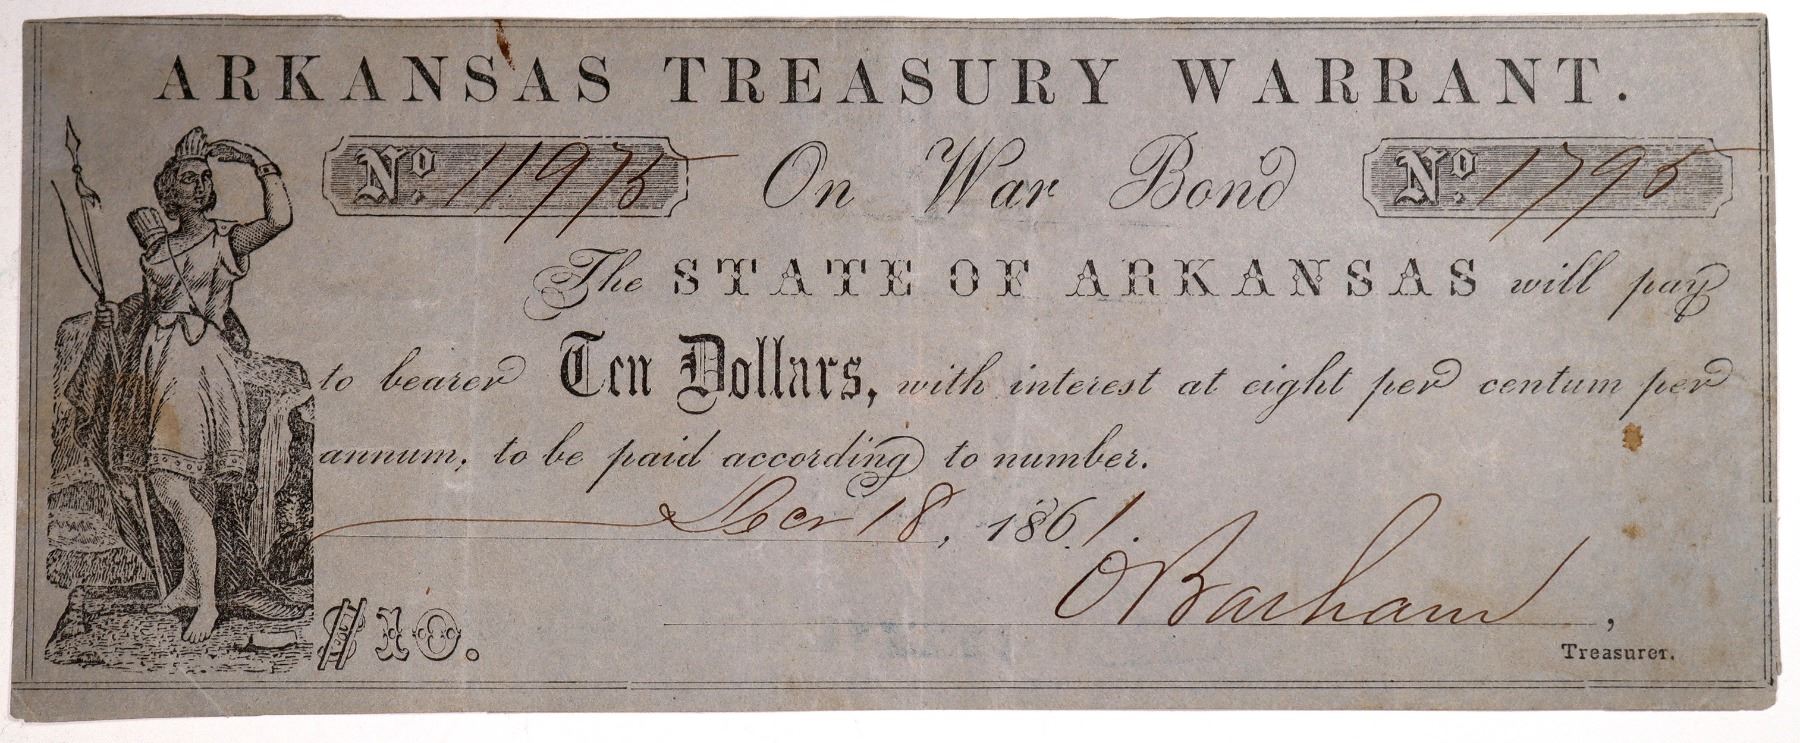 ARKANSAS TREASURY WARRANT.
No. 11975 On War Bond No. 1795
The STATE OF ARKANSAS will pay
to bearer Ten Dollars, with interest at eight per centum per
annum, to be paid according to number.
Dec 18, 1861.
O Barham,
$10.
Treasurer.